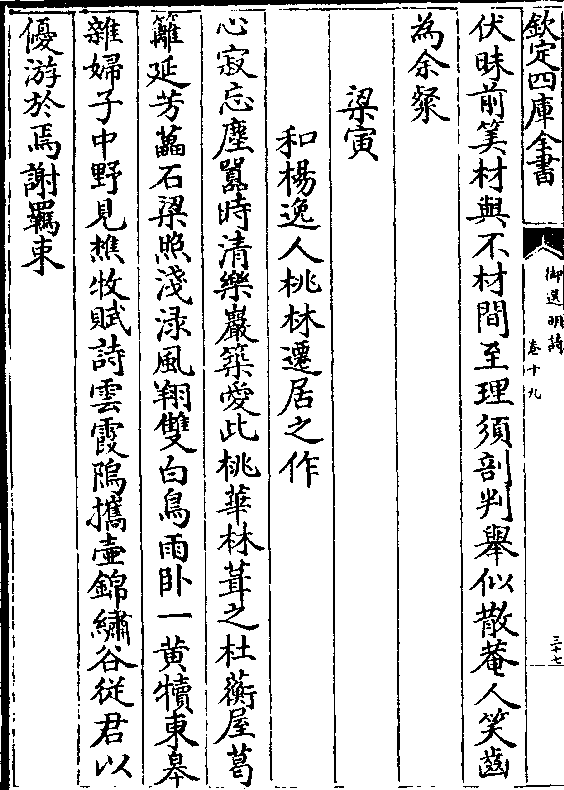 欽定四庫全書
御選明詩
卷十九
三十七
伏昧前筭材與不材間至理須剖判舉似散菴人笑齒
為余粲
梁寅
和楊逸人桃林遷居之作
心寂忘塵囂時清樂巖築愛此桃華林葺之杜蘅屋葛
籬延芳藟石梁照淺淥風翔雙白鳥雨臥一黃犢東皋
雜婦子中野見樵牧賦詩雲霞隖攜壺錦繡谷從君以
優游於焉謝羈束